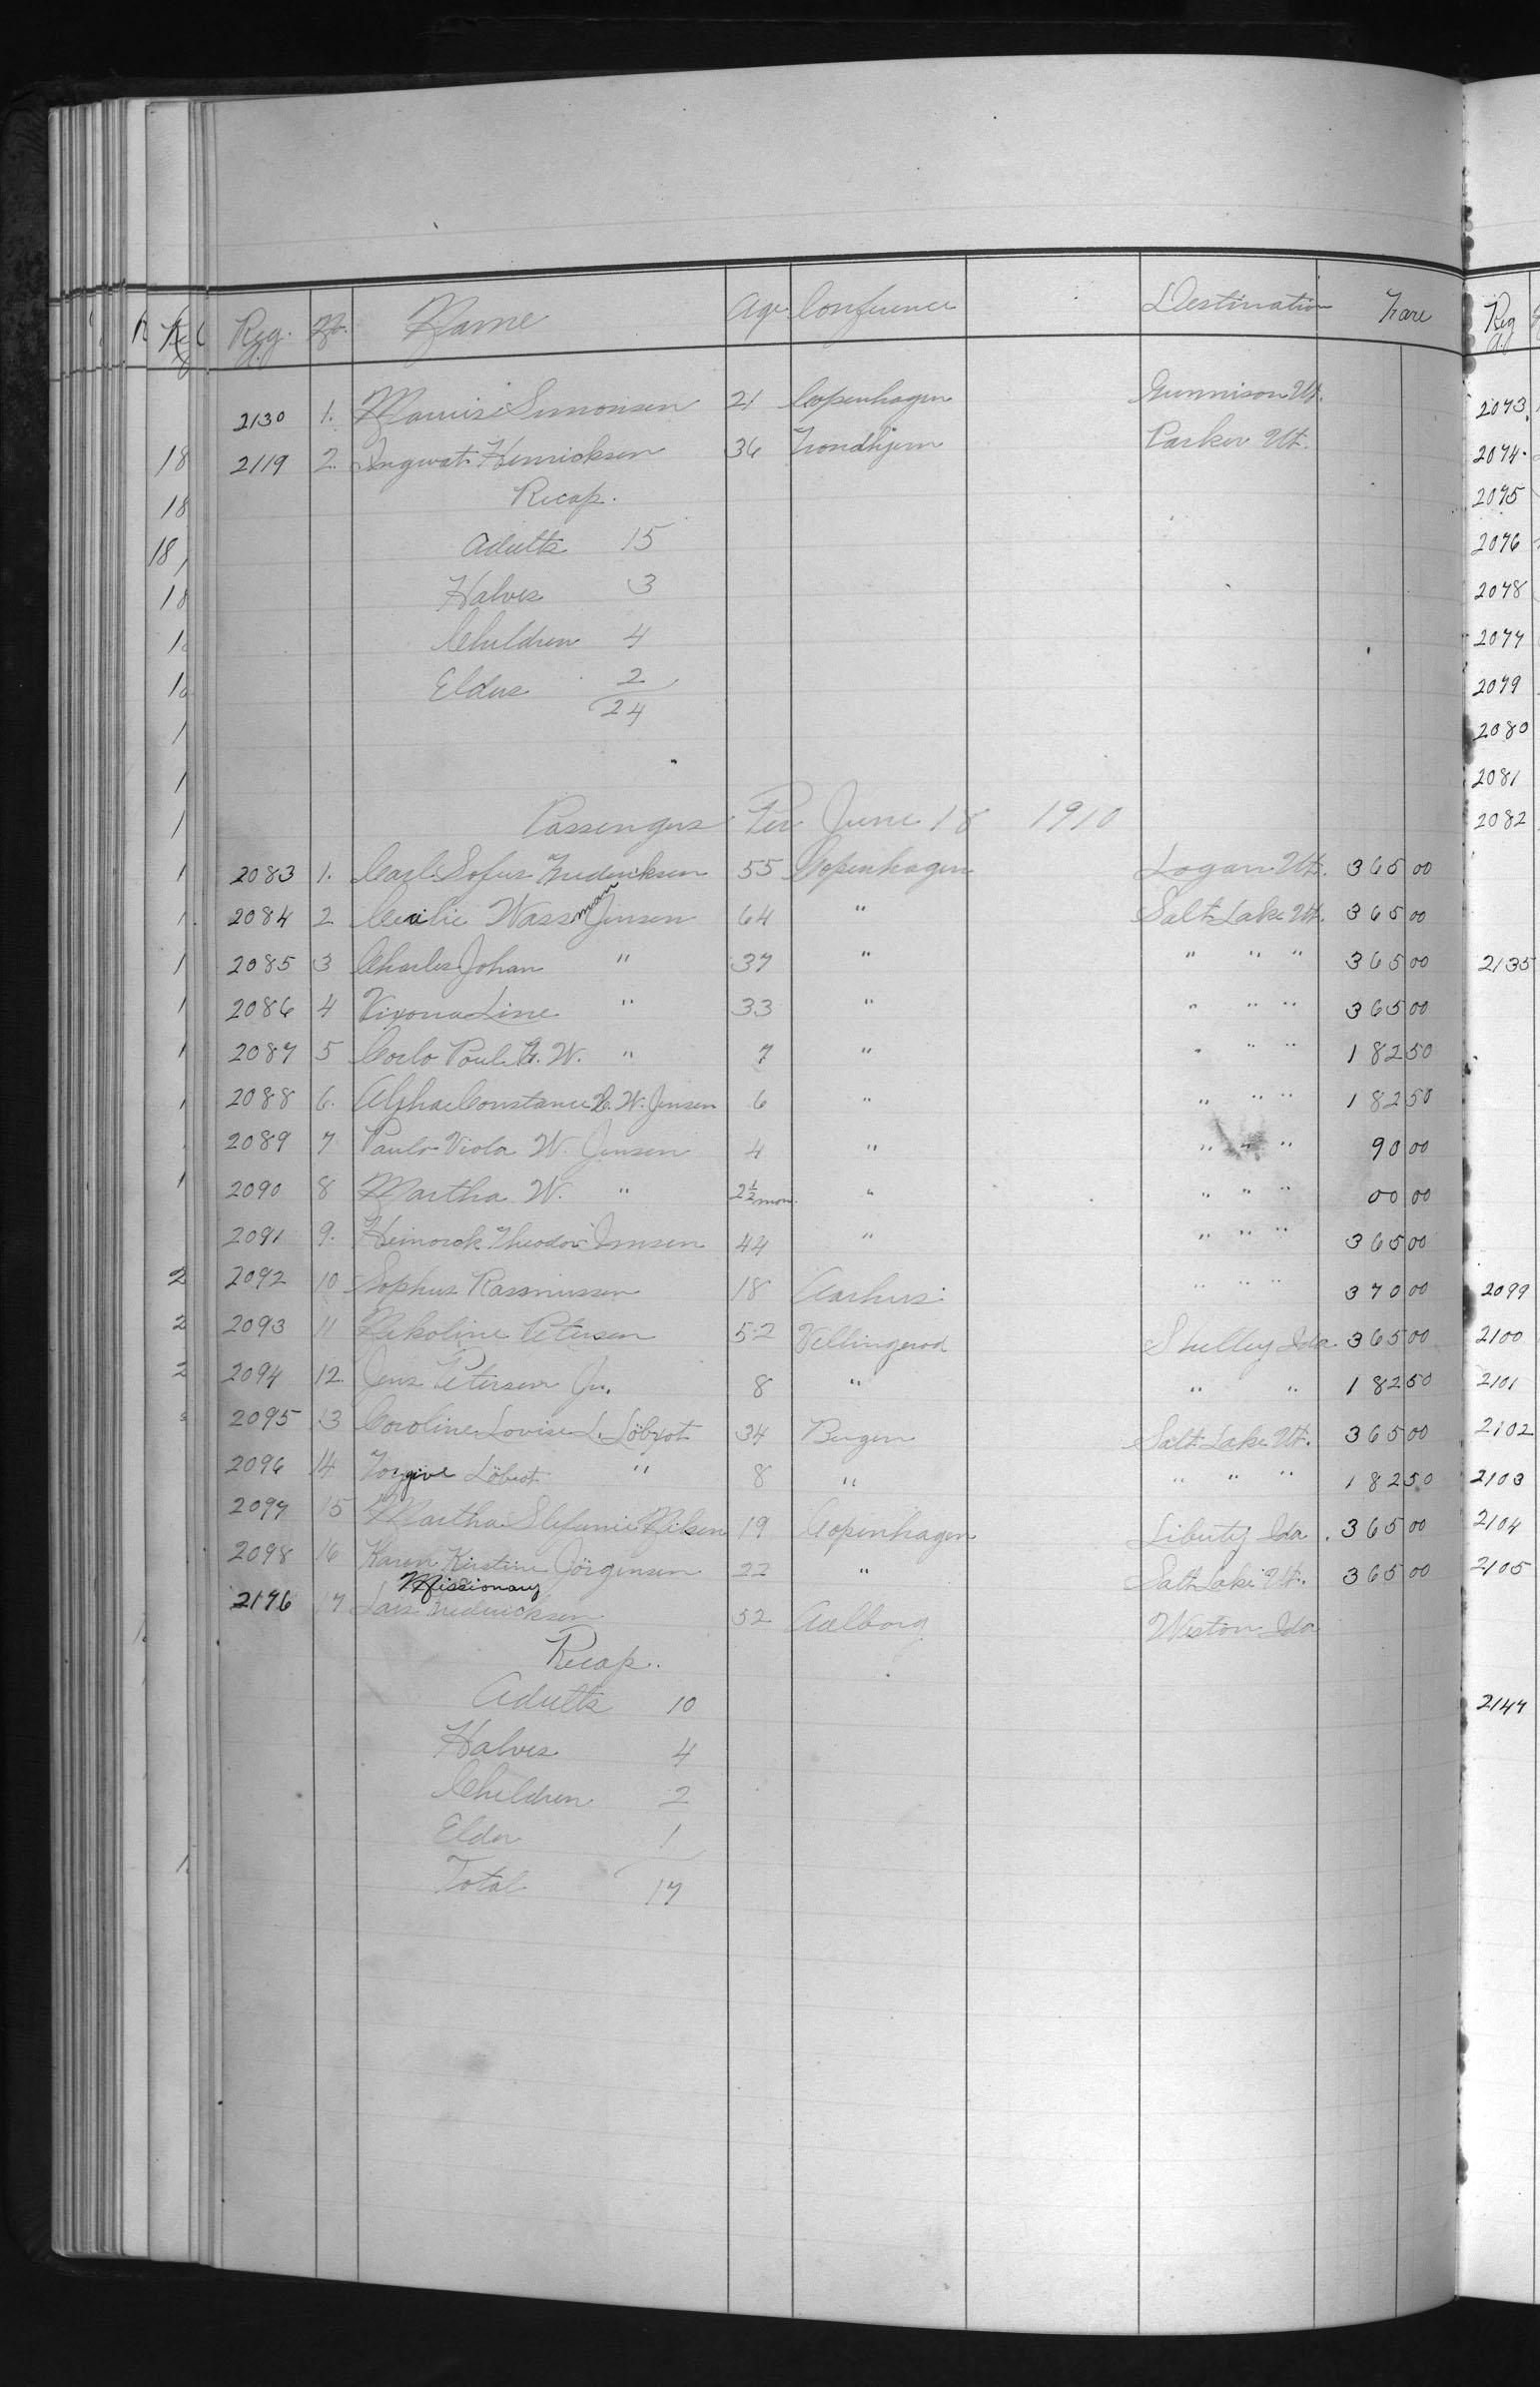 Reg. No. Name Age Conference Destination Fare
2130 1. Simonsen 21 Copenhagen Gunnison Ut.
2119 2. Ingwat Henricksen 36 Trondhjem Parker Ut.
Recap.
Adults 15
Halves 3
Children 4
Elders 2
24
Passengers Per June 18 1910
2083 1. Carl Sofus Fredericksen 55 Copenhagen Logan Ut. 365 00
2084 2 Wassman Jensen 64 " Salt Lake Ut. 365 00
2085 3 Charles Johan " 37 " " " " 365 00
2086 4 Line " 33 " " " " 365 00
2087 5 Carlo Poul W. " 7 " " " " 182 50
2088 6. Alpha Constance C. W. Jensen 6 " " " " 182 50
2089 7 Paula Viola W. Jensen 4 " " " " 90 00
2090 8 Martha W. " 2½ mon. " " " " 00 00
2091 9. Theodor Jensen 44 " " " " 365 00
2092 10 Sophus Rasmussen 18 Aarhus " " " 370 00
2093 11 Nikoline Petersen 52 Shelley Ida 365 00
2094 12. Jens Petersen Jr. 8 " " " 182 50
2095 13 Caroline Lovise L. 34 Bergen Salt Lake Ut. 365 00
2096 14 " 8 " " " " 182 50
2097 15 Martha Stefanie Nilsen 19 Copenhagen Liberty Ida. 365 00
2098 16 Karen Kirstine Jörgensen 22 " Salt Lake Ut. 365 00
Missionary
2176 17 Lars Fredericksen 52 Aalborg Weston Ida
Recap.
Adults 10
Halves 4
Children 2
Elder 1
Total 17
Reg
2073.
2074.
2075
2076
2078
2077
2079
2080
2081
2082
2135
2099
2100
2101
2102
2103
2104
2105
2147